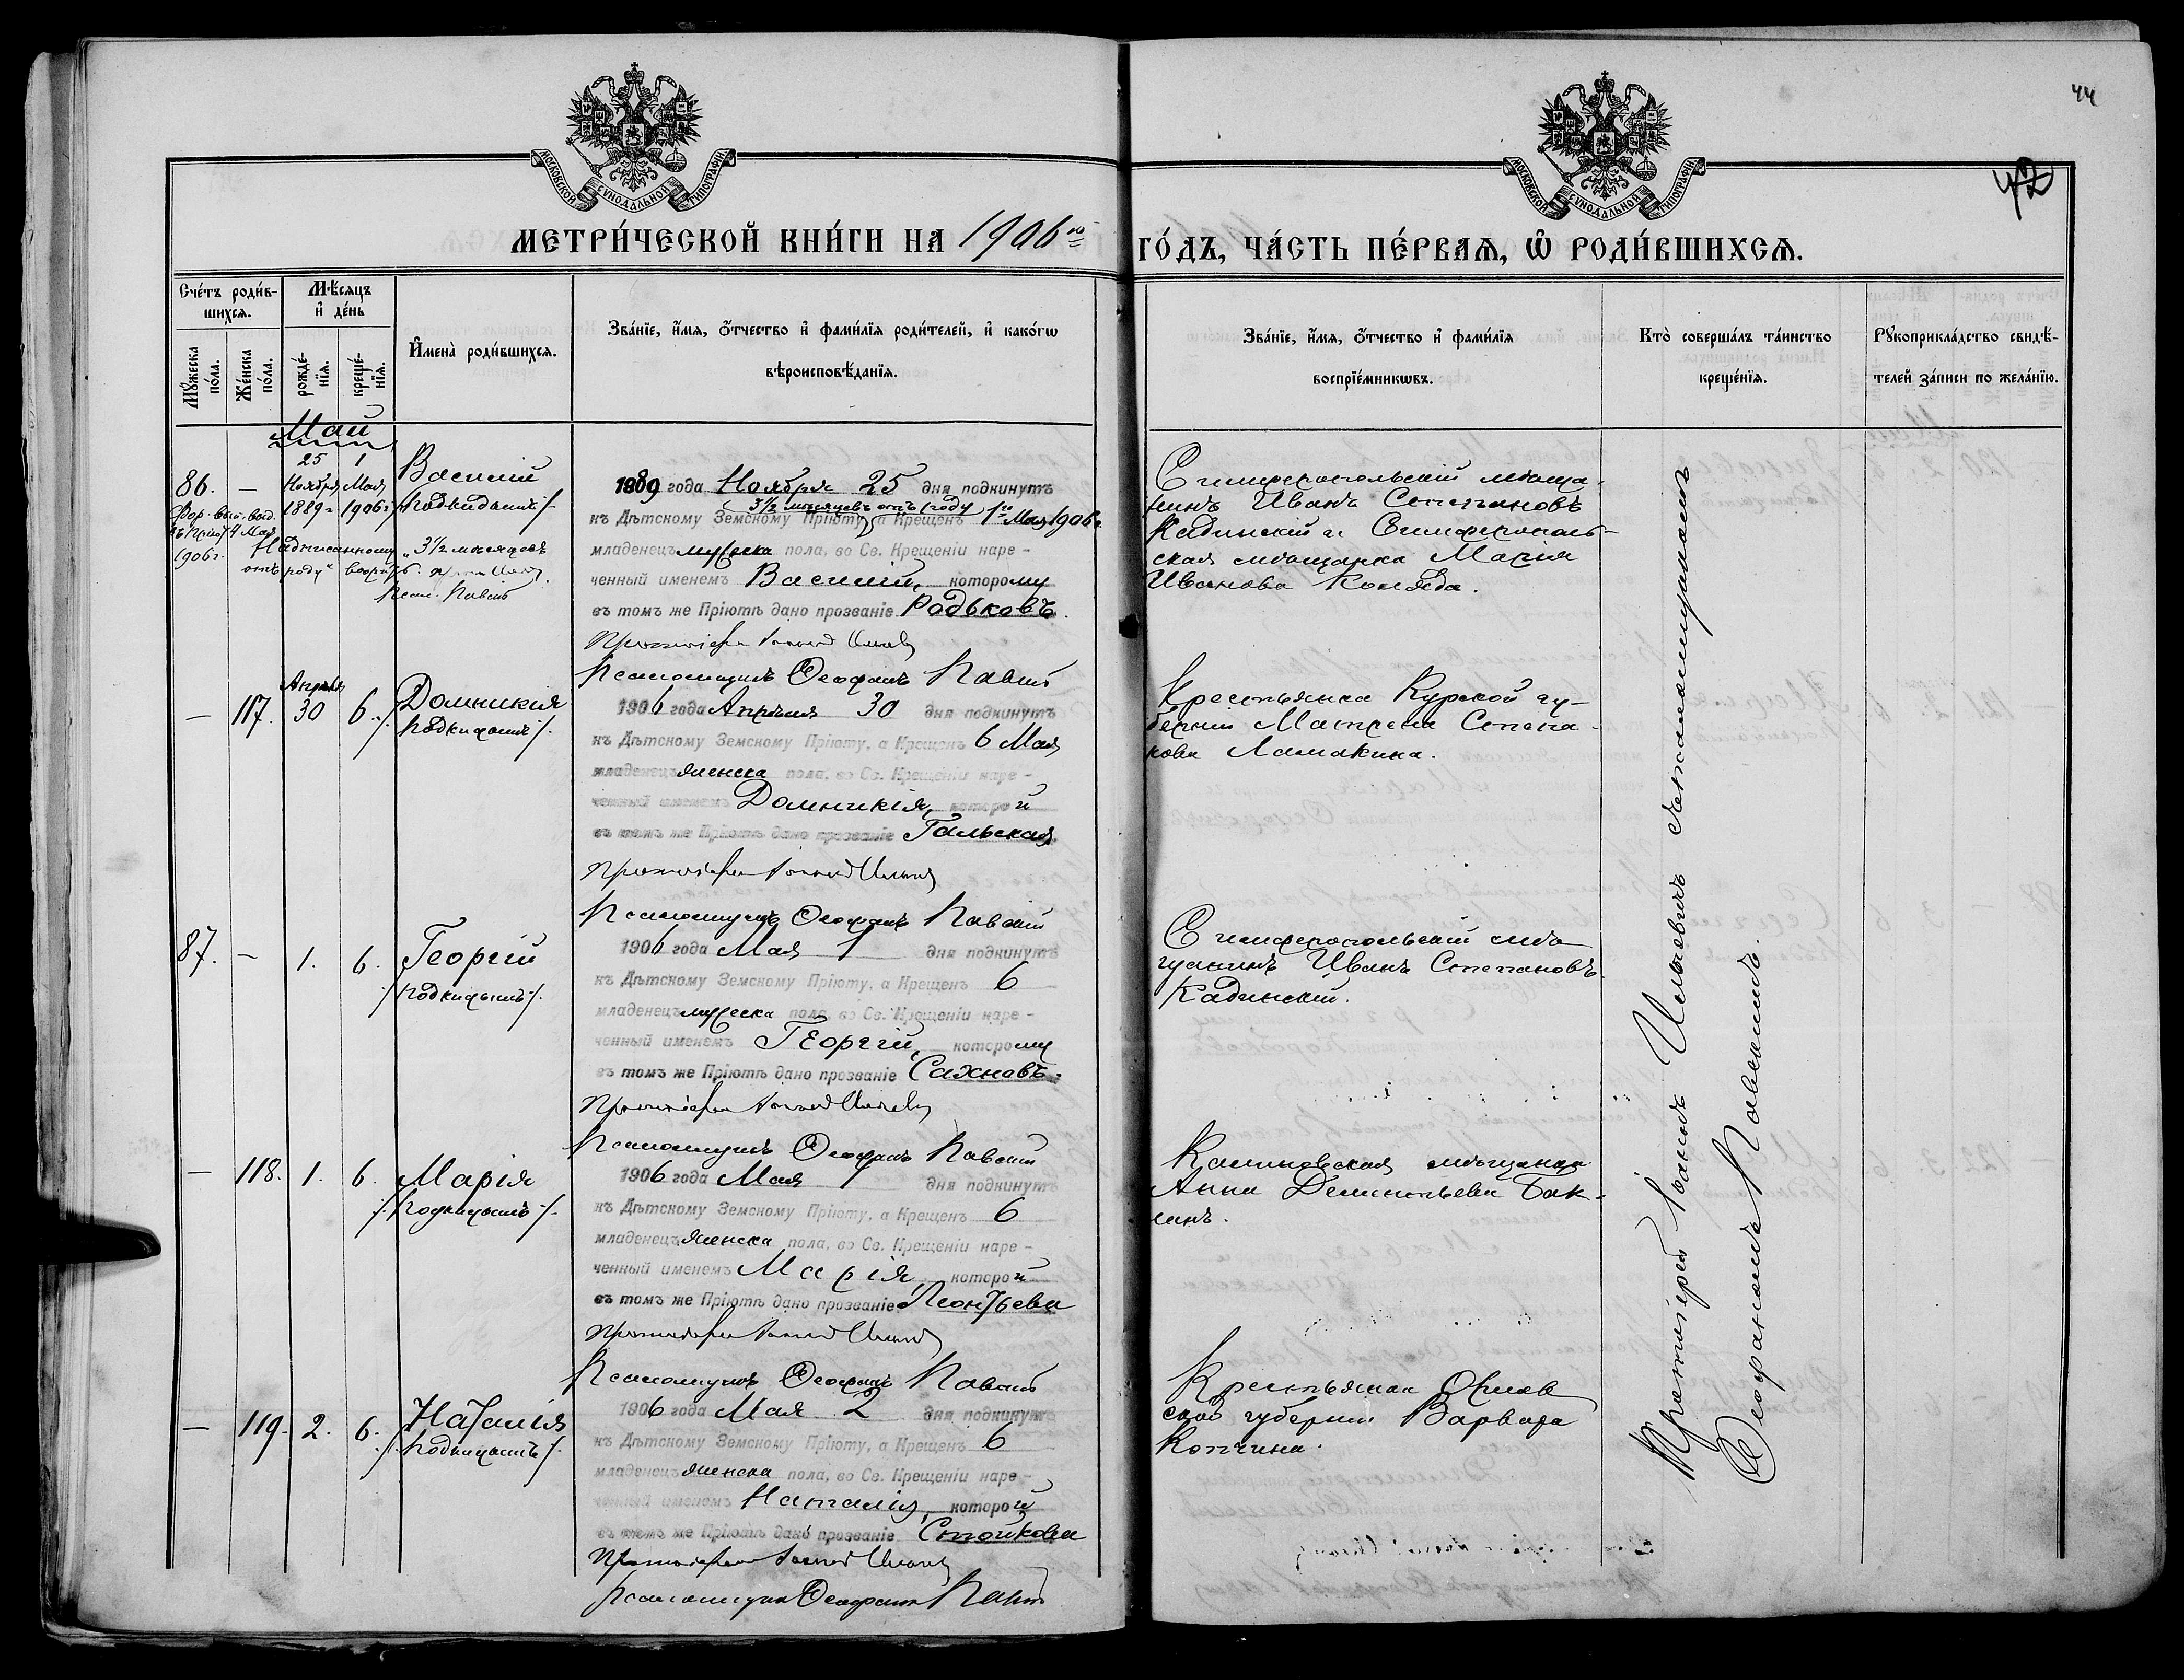 44
42
МОСКОВСКОЙ СѴНОДАЛЬНОЙ ТИПОГРАФІИ
МОСКОВСКОЙ СѴНОДАЛЬНОЙ ТИПОГРАФІИ
МЕТРИ́ЧЕСКОЙ КНИ́ГИ НА 1906 го
ГО́ДЪ, ЧА́СТЬ ПЕ́РВАѦ, Ѡ҆ РОДИ́ВШИХСѦ.
Сче́тъ роди́в-
шихсѧ.
Мꙋ́жеска по́ла.
Же́нска по́ла.
Мѣ́сѧцъ и҆ де́нь
рожде́-нїѧ.
креще́-нїѧ.
И҆мена̀ роди́вшихсѧ.
Зва́нїе, и҆́мѧ, ѻ҆́тчество и҆ фами́лїѧ роди́телей, и҆ како́гѡ
вѣроисповѣ́данїѧ.
Зва́нїе, и҆́мѧ, ѻ҆́тчество и҆ фами́лїѧ
воспрїе́мникѡвъ.
Кто̀ соверша́лъ та́инство
креще́нїѧ.
Рꙋкоприкла́дство свидѣ́-
телей за́писи по жела́нїю.
Май
86. —
25 Ноября 1889 г.
1 Мая 1906 г.
Василій
/подкидышъ/.
Надписанному „3½ мѣсяцевъ
отъ роду“
1889 года Ноября 25 дня подкинутъ
3½ мѣсяцевъ отъ роду
къ Дѣтскому Земскому Пріюту, а Крещенъ 1го Мая 1906 г.
младенецъ мужеска пола, во Св. Крещеніи наре-
ченный именемъ Василій, которому
въ томъ же Пріютѣ дано прозваніе Радьковъ.
Протоіерей Іоаннъ Ильчевичъ
Псаломщикъ Ѳеофанъ Павскій
Симферопольскій мѣща-
нинъ Иванъ Степановъ
Кадинскій и Симферополь-
ская мѣщанка Марія
Иванова Коляда.
— 117. Апрѣля 30 6.
Домникія
/подкидышъ/.
1906 года Апрѣля 30 дня подкинутъ
къ Дѣтскому Земскому Пріюту, а Крещенъ 6 Мая
младенецъ женска пола, во Св. Крещеніи наре-
ченный именемъ Домникія, которой
въ томъ же Пріютѣ дано прозваніе Гальская
Протоіерей Іоаннъ Ильчевичъ
Псаломщикъ Ѳеофанъ Павскій
Крестьянка Курской гу-
берніи Матрена Степа-
нова Ламакина.
87. — 1. 6.
Георгій
/подкидышъ/.
1906 года Мая 1 дня подкинутъ
къ Дѣтскому Земскому Пріюту, а Крещенъ 6
младенецъ мужеска пола, во Св. Крещеніи наре-
ченный именемъ Георгій, которому
въ томъ же Пріютѣ дано прозваніе Сахновъ.
Протоіерей Іоаннъ Ильчевичъ
Псаломщикъ Ѳеофанъ Павскій
Симферопольскій мѣ-
щанинъ Иванъ Степановъ
Кадинскій.
— 118. 1. 6.
Марія
/подкидышъ/.
1906 года Мая 1 дня подкинутъ
къ Дѣтскому Земскому Пріюту, а Крещенъ 6
младенецъ женска пола, во Св. Крещеніи наре-
ченный именемъ Марія, которой
въ томъ же Пріютѣ дано прозваніе Леонтьева
Протоіерей Іоаннъ Ильчевичъ
Псаломщикъ Ѳеофанъ Павскій
мѣщанка
Анна Дементьева Бак-
ланъ.
— 119. 2. 6.
Наталія
/подкидышъ/.
1906 года Мая 2 дня подкинутъ
къ Дѣтскому Земскому Пріюту, а Крещенъ 6
младенецъ женска пола, во Св. Крещеніи наре-
ченный именемъ Наталія, которой
въ томъ же Пріютѣ дано прозваніе Стойкова
Протоіерей Іоаннъ Ильчевичъ
Псаломщикъ Ѳеофанъ Павскій
Крестьянка Орлов-
ской губерніи Варвара
Копчина.
Протоіерей Іоаннъ Ильчевичъ съ псаломщикомъ
Ѳеофаномъ Павскимъ.